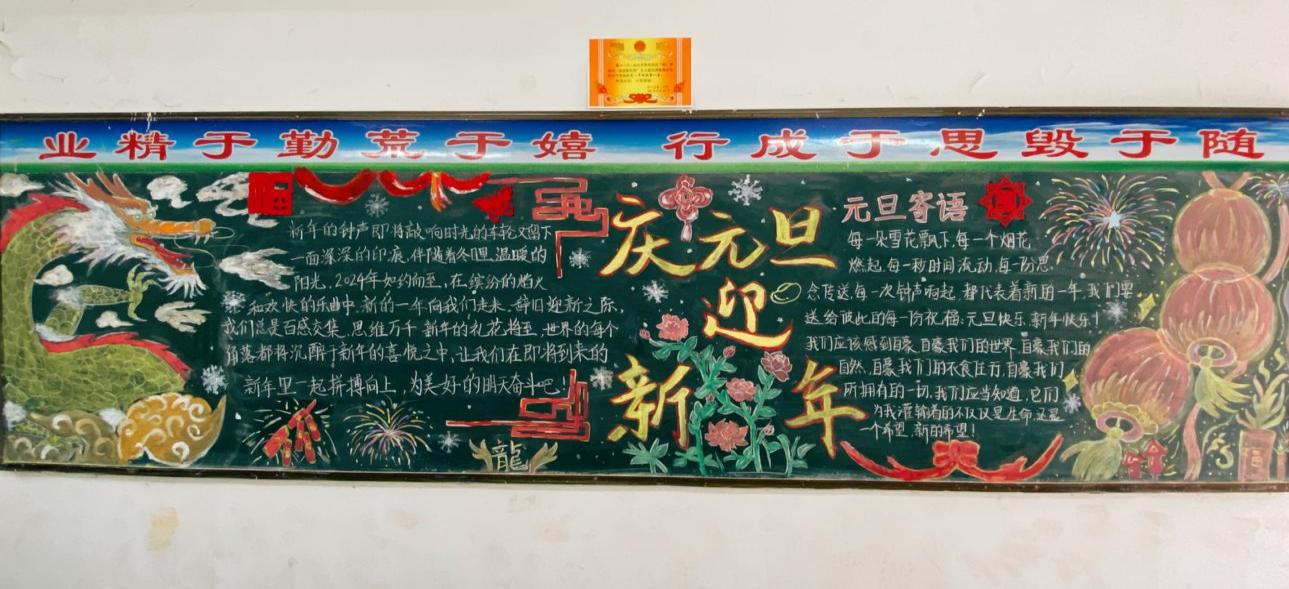 业精于勤荒于嬉 行成于思毁于随
新年的钟声即将敲响时光的车轮又留下
一面深深的印痕,伴随着冬日里温暖的
阳光,2024年如约而至,在缤纷的焰火
和欢快的乐曲中,新的一年向我们走来,辞旧迎新之际,
我们总是百感交集,思维万千 新年的礼花将至,世界的每个
角落都将沉醉于新年的喜悦之中,让我们在即将到来的
新年里一起拼搏向上,为美好的明天奋斗吧!
龍
庆元旦
迎
新年
元旦寄语
每一朵雪花飘下,每一个烟花
燃起,每一秒时间流动,每一份思
念传送,每一次钟声响起,都代表着新的一年,我们要
送给彼此的每一份祝福:元旦快乐,新年快乐!
我们应该感到自豪,自豪我们的世界,自豪我们的
自然,自豪我们用不食压万,自豪我们
所拥有的一切,我们应当知道,它们
为我灌输着的不仅仅是生命,还是
一个希望,新的希望!
福